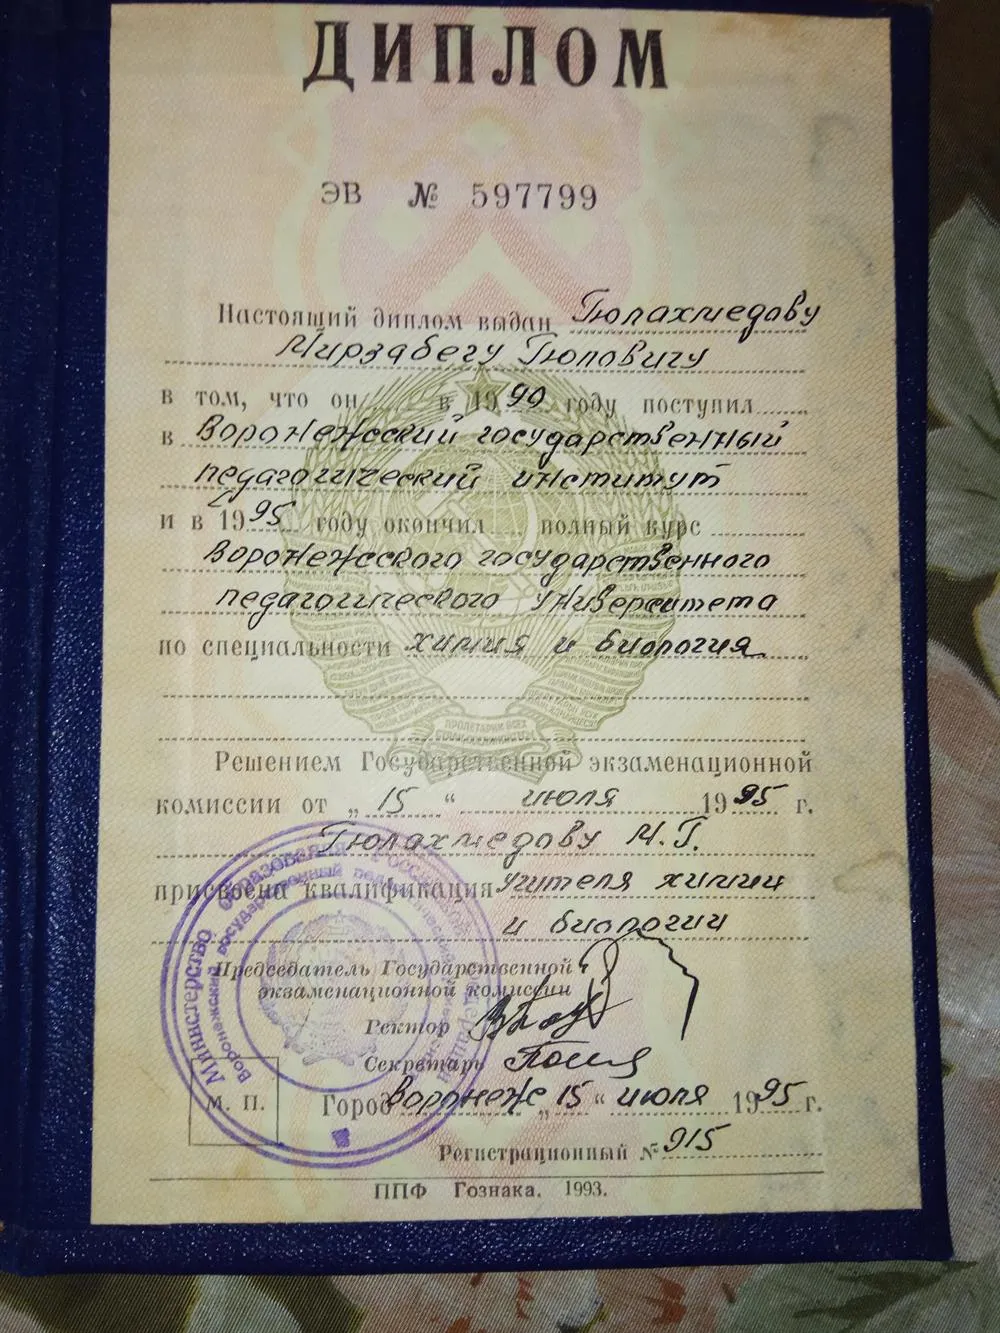 ДИПЛОМ
ЭВ № 597799
Настоящий диплом выдан Гюлахмедову
Мирзабегу Гюловичу
в том, что он в 1990 году поступил
в Воронежский государственный
педагогический институт
и в 1995 году окончил полный курс
Воронежского государственного
педагогического университета
по специальности химия и биология
Решением Государственной экзаменационной
комиссии от „15“ июля 1995 г.
Гюлахмедову М.Г.
присвоена квалификация учителя химии
и биологии
Председатель Государственной
экзаменационной комиссии
Ректор
Секретарь
Город Воронеж „15“ июля 1995 г.
М. П.
Регистрационный № 915
ППФ Гознака. 1993.
Министерство образования Российской
Воронежский государственный педагогический
ПРОЛЕТАРИИ ВСЕХ
СТРАН, СОЕДИНЯЙТЕСЬ!